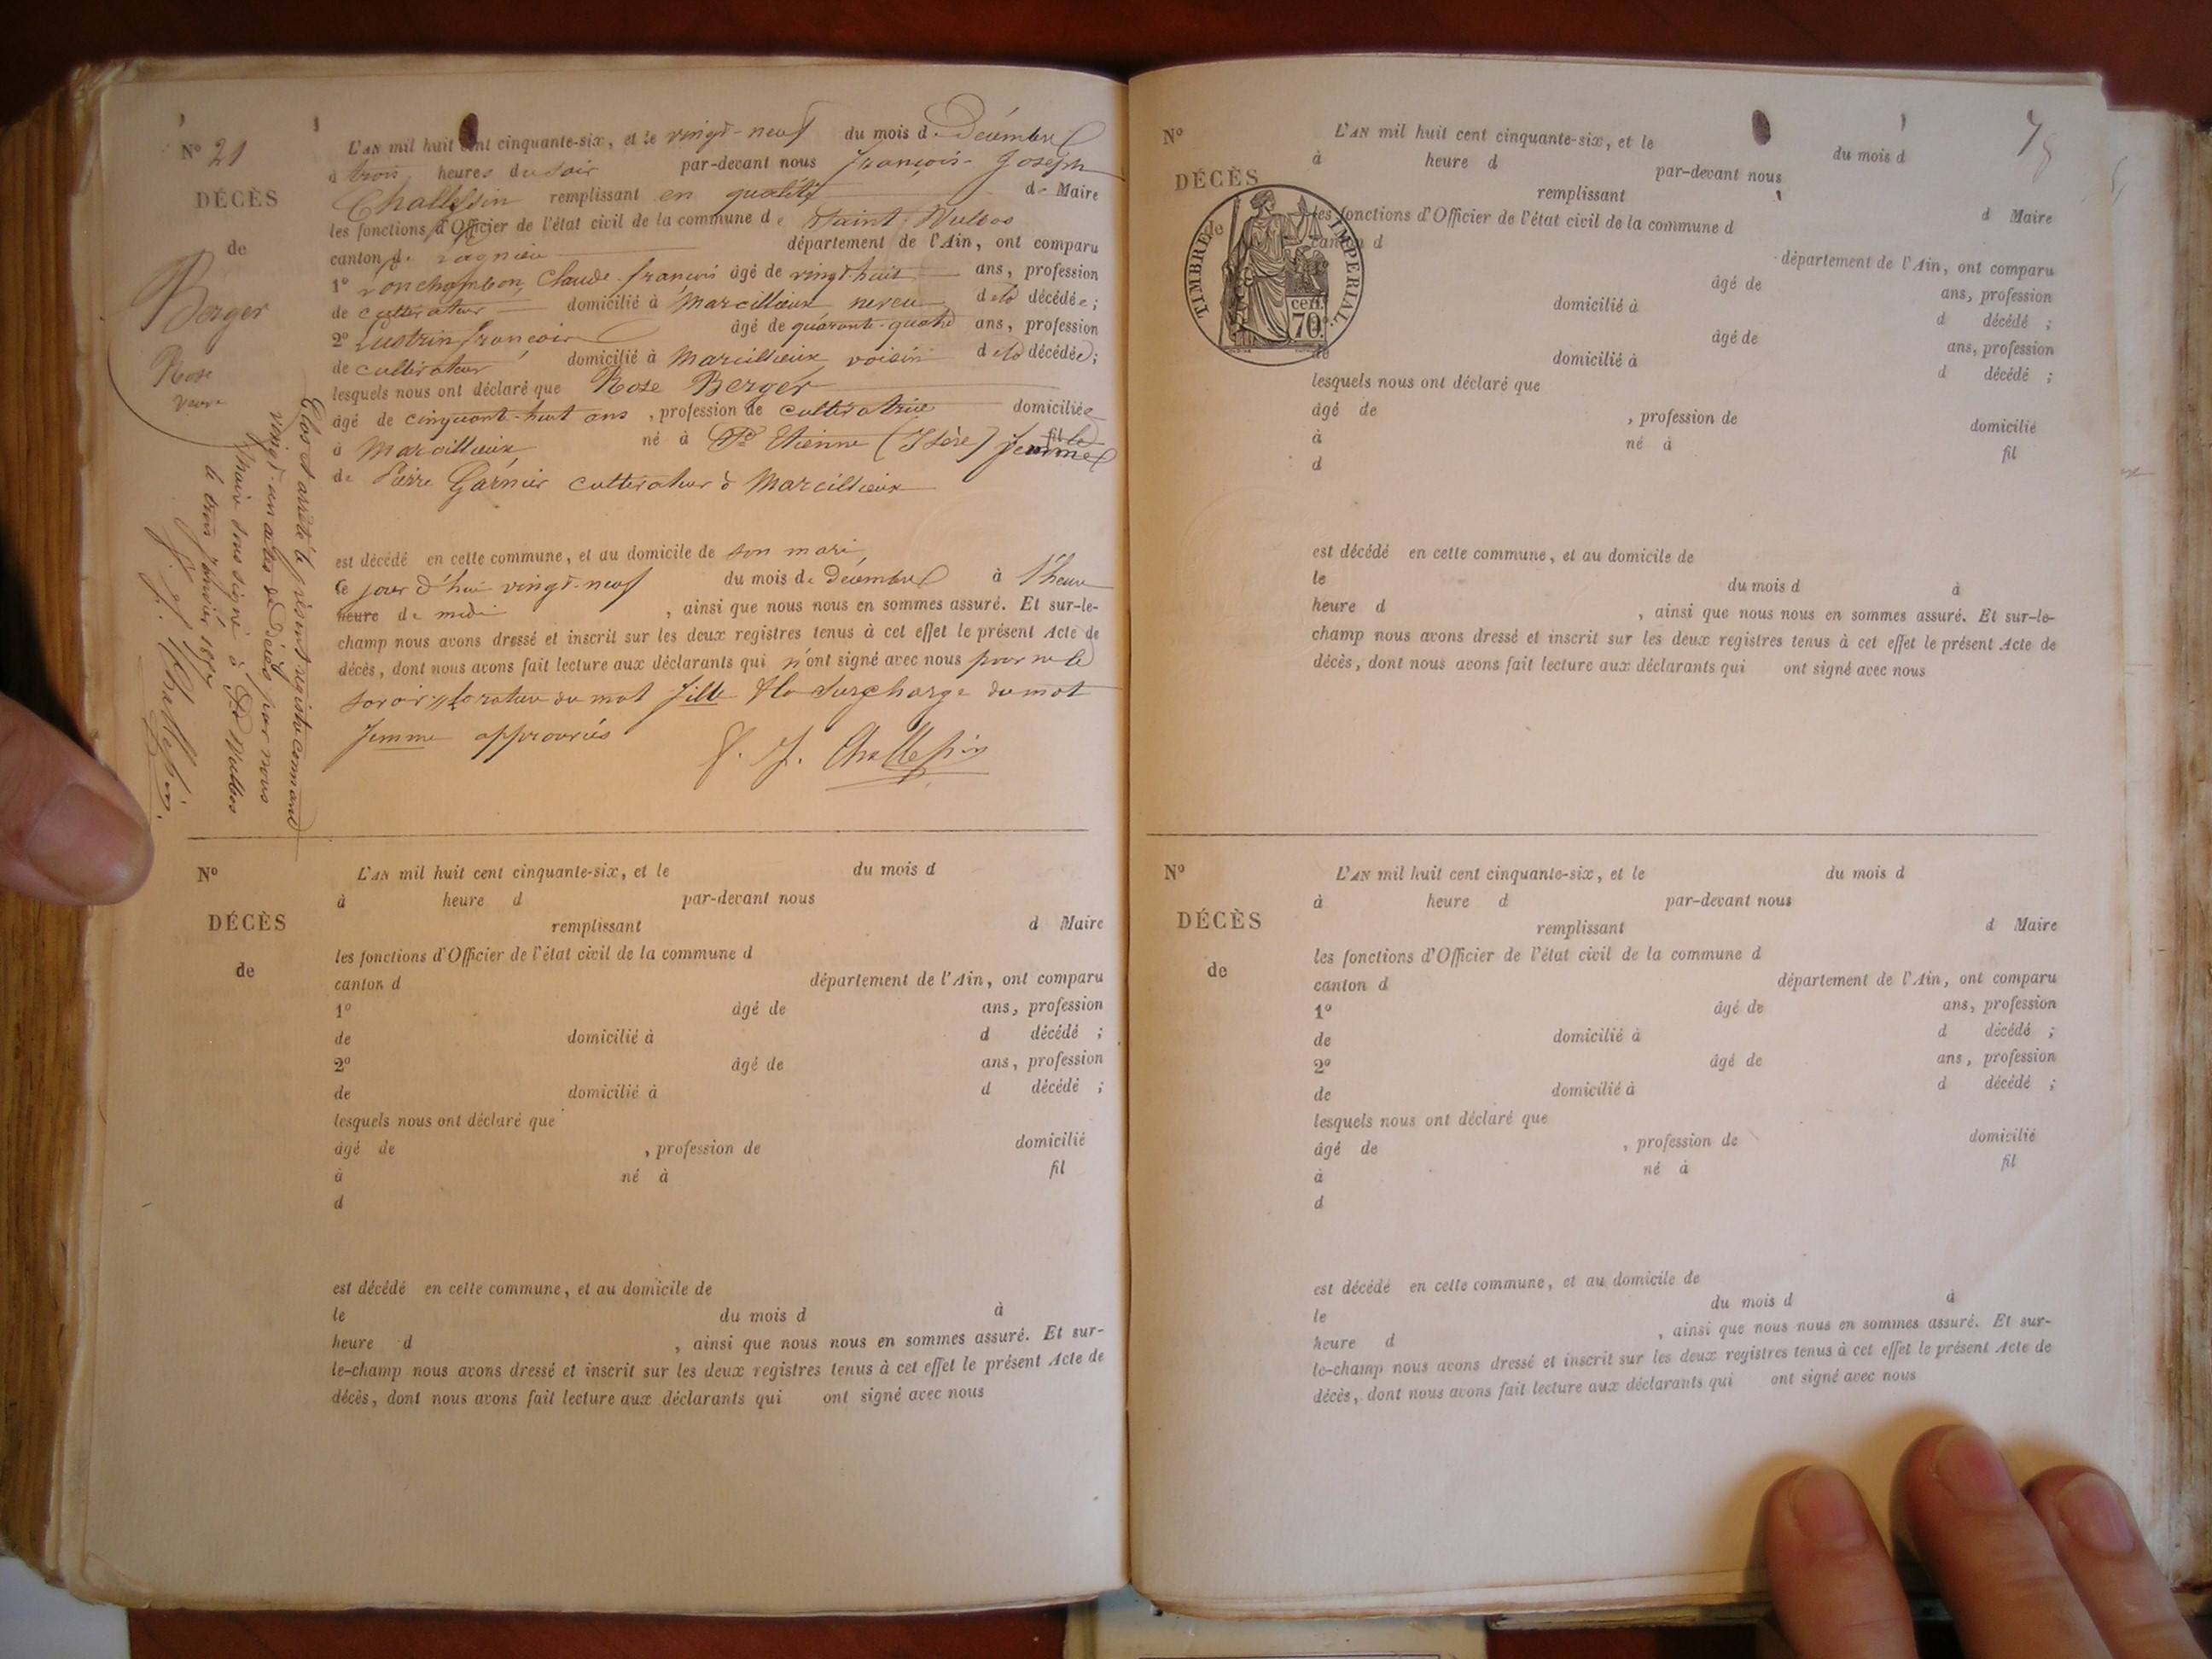 N° 21
DÉCÈS
de
Berger
Rose
L'AN mil huit cent cinquante-six, et le vingt-neuf du mois de Décembre
à trois heures du soir par-devant nous françois-Joseph
Challessin remplissant en qualité de Maire
les fonctions d'Officier de l'état civil de la commune de Saint Vulbas
canton de Lagnieu département de l'Ain, ont comparu
1° Ronchambon, Claude françois âgé de vingt-huit ans, profession
de cultivateur domicilié à Marcillieux neveu de la décédée;
2° Lustrin françois âgé de quarante-quatre ans, profession
de cultivateur domicilié à Marcillieux voisin de la décédée;
lesquels nous ont déclaré que Rose Berger
âgé de cinquante-huit ans, profession de cultivatrice domiciliée
à Marcillieux né à St Etienne (Isère) femme
de Pierre Garnier cultivateur à Marcillieux
est décédé en cette commune, et au domicile de son mari
le jour d'hui vingt-neuf du mois de Décembre à l'heure
heure de midi, ainsi que nous nous en sommes assuré. Et sur-le-
champ nous avons dressé et inscrit sur les deux registres tenus à cet effet le présent Acte de
décès, dont nous avons fait lecture aux déclarants qui n'ont signé avec nous pour ne le
savoir, la rature du mot fille & la Surcharge du mot
femme approuvés
f. J. Challessin
Clos et arrêté le présent registre
vingt-un actes de Décès par nous
Maire soussigné à St Vulbas
le trois janvier 1857
f. J. Challessin
N°
DÉCÈS
de
L'AN mil huit cent cinquante-six, et le du mois d
à heure d par-devant nous
remplissant d Maire
les fonctions d'Officier de l'état civil de la commune d
canton d département de l'Ain, ont comparu
1° âgé de ans, profession
de domicilié à d décédé ;
2° âgé de ans, profession
de domicilié à d décédé ;
lesquels nous ont déclaré que
âgé de , profession de domicilié
à né à fil
d
est décédé en cette commune, et au domicile de
le du mois d à
heure d , ainsi que nous nous en sommes assuré. Et sur-
le-champ nous avons dressé et inscrit sur les deux registres tenus à cet effet le présent Acte de
décès, dont nous avons fait lecture aux déclarants qui ont signé avec nous
N°
DÉCÈS
TIMBRE IMPERIAL
70 cent.
L'AN mil huit cent cinquante-six, et le du mois d
à heure d par-devant nous
remplissant d Maire
les fonctions d'Officier de l'état civil de la commune d
canton d département de l'Ain, ont comparu
âgé de ans, profession
domicilié à d décédé ;
âgé de ans, profession
de domicilié à d décédé ;
lesquels nous ont déclaré que
âgé de , profession de domicilié
à né à fil
d
est décédé en cette commune, et au domicile de
le du mois d à
heure d , ainsi que nous nous en sommes assuré. Et sur-le-
champ nous avons dressé et inscrit sur les deux registres tenus à cet effet le présent Acte de
décès, dont nous avons fait lecture aux déclarants qui ont signé avec nous
N°
DÉCÈS
de
L'AN mil huit cent cinquante-six, et le du mois d
à heure d par-devant nous
remplissant d Maire
les fonctions d'Officier de l'état civil de la commune d
canton d département de l'Ain, ont comparu
1° âgé de ans, profession
de domicilié à d décédé ;
2° âgé de ans, profession
de domicilié à d décédé ;
lesquels nous ont déclaré que
âgé de , profession de domicilié
à né à fil
d
est décédé en cette commune, et au domicile de
le du mois d à
heure d , ainsi que nous nous en sommes assuré. Et sur-
le-champ nous avons dressé et inscrit sur les deux registres tenus à cet effet le présent Acte de
décès, dont nous avons fait lecture aux déclarants qui ont signé avec nous